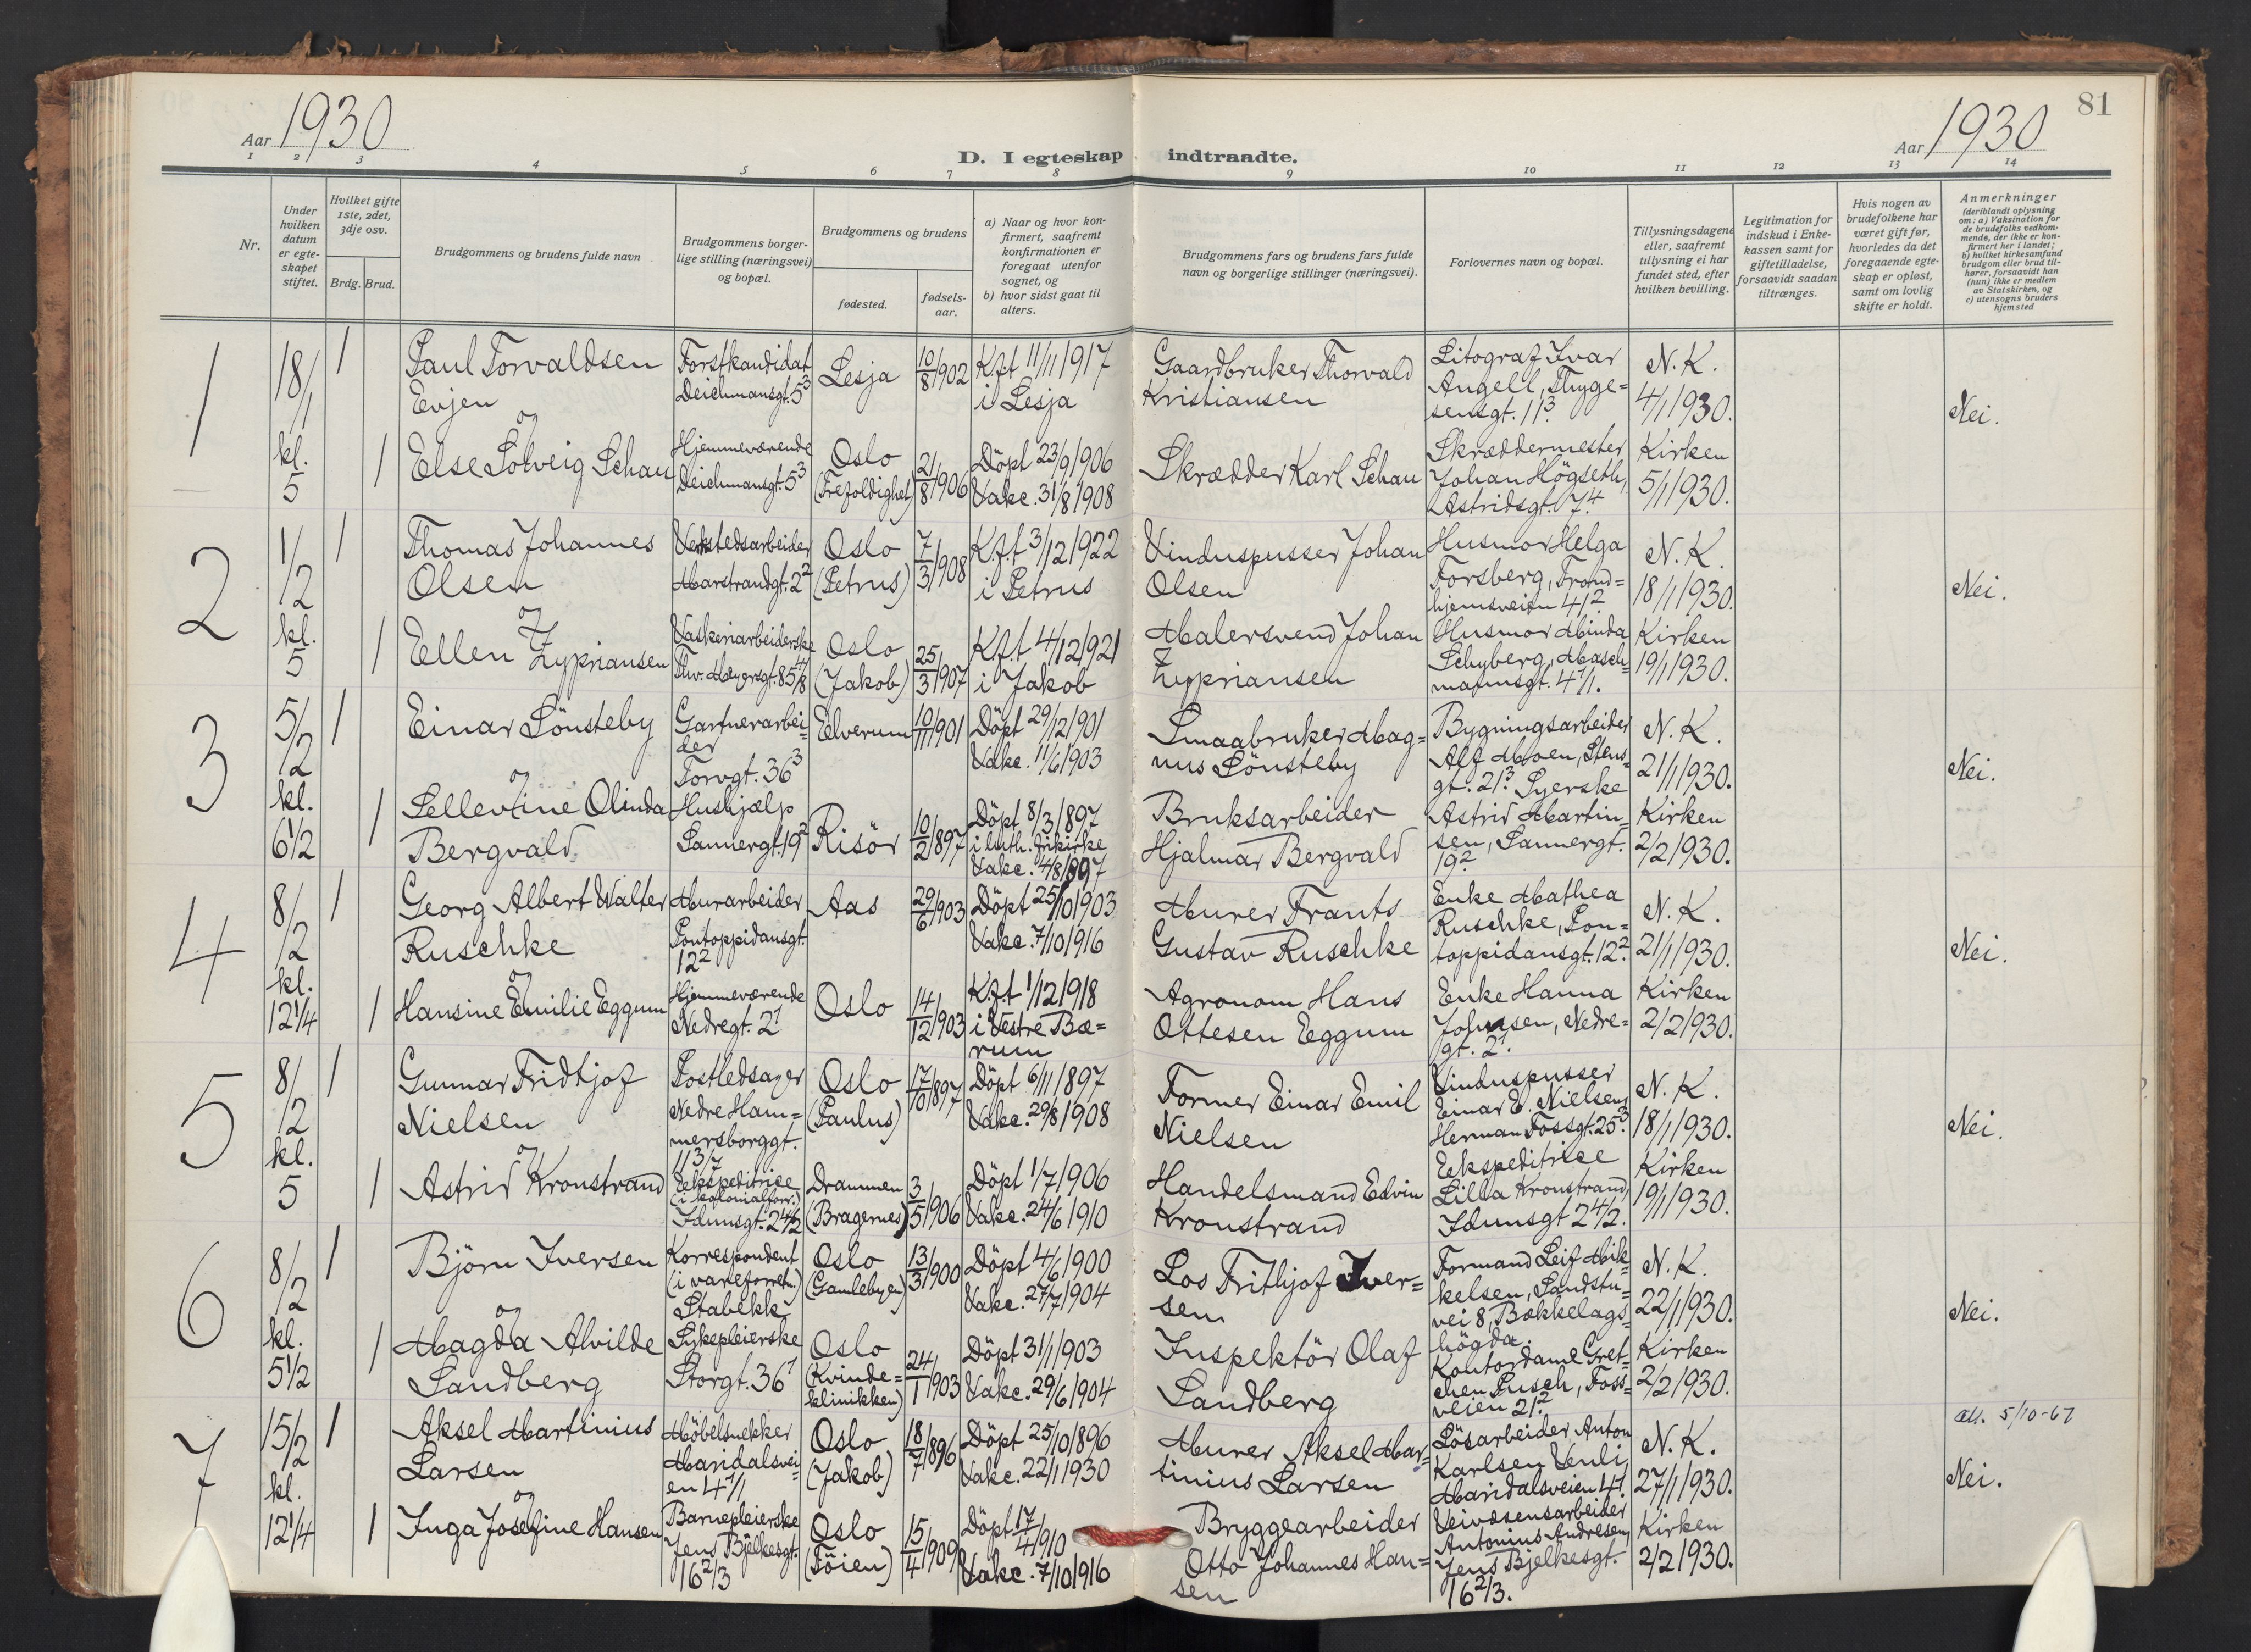 Aar 1930
D. I egteskap indtraadte.
Aar 1930
81
1 2 3 4 5 6 7 8 9 10 11 12 13 14
Nr.
Under hvilken datum er egteskapet stiftet.
Hvilket gifte 1ste, 2det, 3dje osv.
Brdg. Brud.
Brudgommens og brudens fulde navn
Brudgommens borgerlige stilling (næringsvei) og bopæl.
Brudgommens og brudens
fødested.
fødselsaar.
a) Naar og hvor konfirmert, saafremt konfirmationen er foregaat utenfor sognet, og
b) hvor sidst gaat til alters.
Brudgommens fars og brudens fars fulde navn og borgerlige stillinger (næringsvei).
Forlovernes navn og bopæl.
Tillysningsdagene eller, saafremt tillysning ei har fundet sted, efter hvilken bevilling.
Legitimation for indskud i Enkekassen samt for giftetilladelse, forsaavidt saadan tiltrænges.
Hvis nogen av brudefolkene har været gift før, hvorledes da det foregaaende egteskap er opløst, samt om lovlig skifte er holdt.
Anmerkninger
(deriblandt oplysning om: a) Vaksination for de brudefolks vedkommende, der ikke er konfirmert her i landet;
b) hvilket kirkesamfund brudgom eller brud tilhører, forsaavidt han (hun) ikke er medlem av Statskirken, og
c) utensogns bruders hjemsted
1
18/1 kl. 5
1
Paul Torvaldsen Evjen
og
Forstkandidat Deichmansgt. 5³
Lesja
10/8 1902
Kft 11/11 1917 i Lesja
Gaardbruker Thorvald Kristiansen
Litograf Ivar Angell, Thygesensgt. 11³.
N. K. 4/1 1930.
Nei.
1
Else Solveig Schau
Hjemmeværende Deichmansgt. 5³
Oslo (Trefoldighet)
21/8 1906
Döpt 23/9 1906 Vakc. 31/8 1908
Skrædder Karl Schau
Skræddermester Johan Högseth, Astridsgt. 7⁴.
Kirken 5/1 1930.
2
1/2 kl. 5
1
Thomas Johannes Olsen
og
Verkstedsarbeider Marstrandgt. 2²
Oslo (Petrus)
7/3 1908
Kft 3/12 1922 i Petrus
Vinduspusser Johan Olsen
Husmor Helga Forsberg, Trondhjemsveien 41².
N. K. 18/1 1930.
Nei.
1
Ellen Zypriansen
Vaskeriarbeiderske Thv. Meyersgt. 85⁴/8
Oslo (Jakob)
25/3 1907
Kft 4/12 1921 i Jakob
Malersvend Johan Zypriansen
Husmor Minda Schyberg, Maschmannsgt. 4¹/1.
Kirken 19/1 1930.
3
5/2 kl. 6 1/2
1
Einar Sönsteby
og
Gartnerarbeider Torvgt. 36³
Elverum
10/11 1901
Döpt 29/12 1901 Vakc. 11/6 1903
Smaabruker Magnus Sönsteby
Bygningsarbeider Alf Moen, Stensgt. 21³.
N. K. 21/1 1930.
Nei.
1
Sellevtine Olinda Bergvald
Hushjælp Sannergt. 19²
Risör
10/2 1897
Döpt 8/3 1897 i luth. frikirke Vakc. 4/8 1897
Bruksarbeider Hjalmar Bergvald
Syerske Astrid Martinsen, Sannergt. 19²
Kirken 2/2 1930.
4
8/2 kl. 12 1/4
1
Georg Albert Walter Ruschke
og
Murarbeider Pontoppidansgt. 12²
Aas
29/6 1903
Döpt 25/10 1903 Vakc. 7/10 1916
Murer Frants Gustav Ruschke
Enke Mathea Ruschke, Pontoppidansgt. 12².
N. K. 21/1 1930.
Nei.
1
Hansine Emilie Eggum
Hjemmeværende Nedregt. 2¹
Oslo
14/12 1903
Kft 1/12 1918 i Vestre Bærum
Agronom Hans Ottesen Eggum
Enke Hanna Johnsen, Nedregt. 2¹.
Kirken 2/2 1930.
5
8/2 kl. 5
1
Gunnar Fridtjof Nielsen
og
Postledsager Nedre Hammersborggt. 11³/7
Oslo (Paulus)
17/10 1897
Döpt 6/11 1897 Vakc. 29/8 1908
Former Einar Emil Nielsen
Vinduspusser Einar E. Nielsen, Herman Fossgt. 25³.
N. K. 18/1 1930.
Nei.
1
Astrid Kronstrand
Ekspeditrice (i kolonialforr.) Idunsgt. 2⁴/2
Drammen (Bragernes)
3/5 1906
Döpt 1/7 1906 Vakc. 24/6 1910
Handelsmand Edvin Kronstrand
Ekspeditrice Lilla Kronstrand, Idunsgt 2⁴/2.
Kirken 19/1 1930.
6
8/2 kl. 5 1/2
1
Björn Iversen
og
Korrespondent (i vareforretn.) Stabekk
Oslo (Gamlebyen)
13/3 1900
Döpt 4/6 1900 Vakc. 27/7 1904
Los Frithjof Iversen
Formand Leif Mikkelsen, Sandstuvei 8, Bækkelagshögda.
N. K. 22/1 1930.
Nei.
1
Magda Alvilde Sandberg
Sykepleierske Storgt. 36¹
Oslo (Kvindeklinikken)
24/1 1903
Döpt 31/1 1903 Vakc. 29/6 1904
Inspektör Olaf Sandberg
Kontordame Gretchen Pusch, Fossveien 21².
Kirken 2/2 1930.
7
15/2 kl. 12 1/4
1
Aksel Martinius Larsen
og
Möbelsnekker Maridalsveien 4¹/1
Oslo (Jakob)
18/7 1896
Döpt 25/10 1896 Vakc. 22/1 1930
Murer Aksel Martinius Larsen
Lösarbeider Anton Karlsen Venli, Maridalsveien 4¹.
N. K. 27/1 1930.
5/10-67
Nei.
1
Inga Josefine Hansen
Barnepleierske Jens Bjelkesgt. 16²/3
Oslo (Töien)
15/4 1909
Döpt 17/4 1910 Vakc. 7/10 1916
Bryggearbeider Otto Johannes Hansen
Veivæsensarbeider Antonius Andresen, Jens Bjelkesgt. 16²/3.
Kirken 2/2 1930.